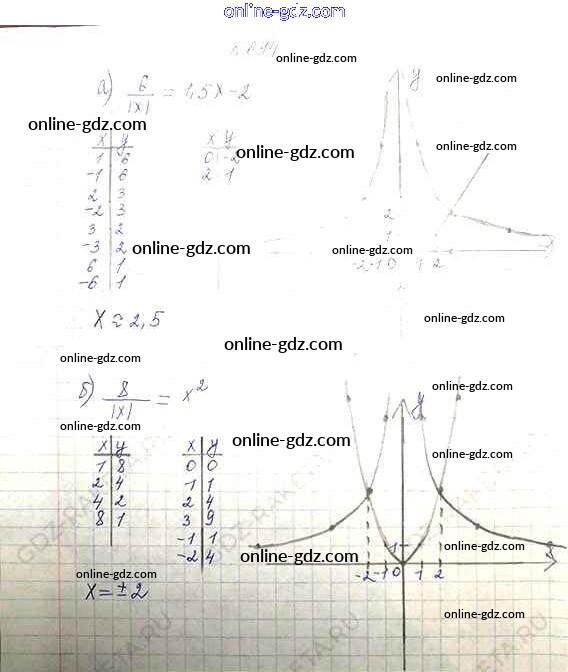 online-gdz.com
online-gdz.com
online-gdz.com
а) 6/|x| = 1,5x-2
y
online-gdz.com
x y
1 6
-1 6
2 3
-2 3
3 2
-3 2
6 1
-6 1
x y
0 -2
2 1
online-gdz.com
online-gdz.com
online-gdz.com
online-gdz.com
2
1
-2 -1 0 1 2
x ≈ 2,5
online-gdz.com
online-gdz.com
online-gdz.com
б) 8/|x| = x²
y
online-gdz.com
online-gdz.com
online-gdz.com
x y
1 8
2 4
4 2
8 1
x y
0 0
1 1
2 4
3 9
-1 1
-2 4
online-gdz.com
online-gdz.com
online-gdz.com
1
-2 -1 0 1 2
online-gdz.com
x = ±2
online-gdz.com